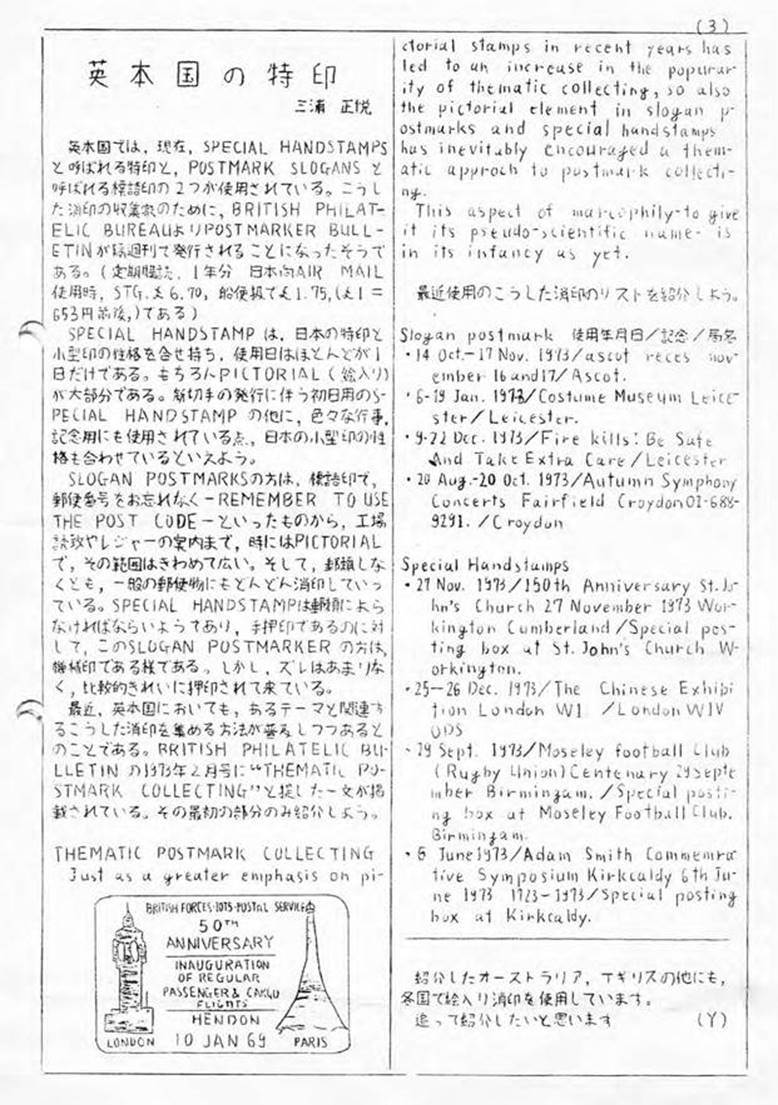 (3)
英本国の特印
三浦 正悦
英本国では,現在,SPECIAL HANDSTAMPS
と呼ばれる特印と,POSTMARK SLOGANS と
呼ばれる標語印の2つが使用されている。こうし
た消印の収集家のために,BRITISH PHILAT-
ELIC BUREAUよりPOSTMARKER BULL-
ETINが隔週刊で発行されることになったそうで
ある。(定期購読,1年分 日本向AIR MAIL
使用時,STG.£6.70,船便扱で£1.75,(£1=
653円前後,)である)
SPECIAL HANDSTAMP は,日本の特印と
小型印の性格を合せ持ち,使用日はほとんどが1
日だけである。もちろんPICTORIAL(絵入り)
が大部分である。新切手の発行に伴う初日用のS-
PECIAL HANDSTAMP の他に,色々な行事,
記念用にも使用されている点,日本の小型印の性
格も合わせているといえよう。
SLOGAN POSTMARKSの方は,標語印で,
郵便番号をお忘れなく-REMEMBER TO USE
THE POST CODE-といったものから,工場
誘致やレジャーの案内まで,時にはPICTORIAL
で,その範囲はきわめて広い。そして,郵頼しな
くとも,一般の郵便物にもどんどん消印していっ
ている。SPECIAL HANDSTAMPは郵頼によら
なければならいようであり,手押印であるのに対
して,このSLOGAN POSTMARKER の方は,
機械印である様である。しかし,ズレはあまりな
く,比較的きれいに押印されて来ている。
最近,英本国においても,あるテーマと関連す
るこうした消印を集める方法が普及しつつあると
のことである。BRITISH PHILATELIC BU-
LLETIN の1973年2月号に"THEMATIC PO-
STMARK COLLECTING"と題した一文が掲
載されている。その最初の部分のみ紹介しよう。
THEMATIC POSTMARK COLLECTING
Just as a greater emphasis on pi-
BRITISH FORCES POSTAL SERVICE
50TH
ANNIVERSARY
INAUGURATION
OF REGULAR
PASSENGER & CARGO
FLIGHTS
HENDON
LONDON 10 JAN 69 PARIS
ctorial stamps in recent years has
led to an increase in the popurar-
ity of thematic collecting, so also
the pictorial element in slogan p-
ostmarks and special handstamps
has inevitably encouraged a them-
atic approch to postmark collecti-
ng.
This aspect of marcophily-to give
it its pseudo-scientific name- is
in its infancy as yet.
最近使用のこうした消印のリストを紹介しよう。
Slogan postmark 使用年月日/記念/局名
・14 Oct.-17 Nov. 1973/ascot reces nov-
ember 16and17/Ascot.
・6-19 Jan. 1973/Costume Museum Leice-
ster/Leicester.
・9-22 Dec. 1973/Fire kills: Be Safe
And Take Extra Care/Leicester
・20 Aug.-20 Oct. 1973/Autumn Symphony
Concerts Fairfield Croydon01-688-
9291. /Croydon
Special Handstamps
・27 Nov. 1973/150th Anniversary St.Jo-
hn's Church 27 November 1973 Wor-
kington Cumberland/Special pos-
ting box at St.John's Church W-
orkington.
・25-26 Dec. 1973/The Chinese Exhibi
tion London W1 /London W1V
0DS
・29 Sept. 1973/Moseley football Club
(Rugby Union)Centenary 29septe
mber Birmingam. /Special posti-
ng box at Moseley Football Club.
Birmingam.
・6 June1973/Adam Smith Commemra
tive Symposium Kirkcaldy 6th Ju-
ne 1973 1723-1973/Special posting
box at Kirkcaldy.
紹介したオーストラリア,イギリスの他にも,
各国で絵入り消印を使用しています。
追って紹介したいと思います (Y)